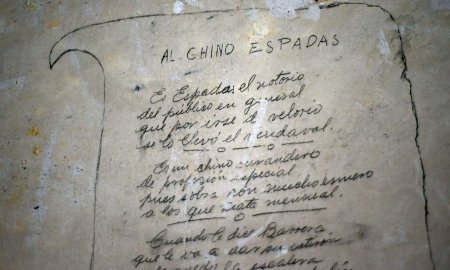 AL CHINO ESPADAS
Es Espadas el notorio
del público en general
que por irse al velorio
se lo llevó el vendaval.
Es un chino curandero
de profesión especial
pues cobra con mucho esmero
a los que mata mensual.
Cuando le dio Barrera
que le va a dar un estirón
la escalera